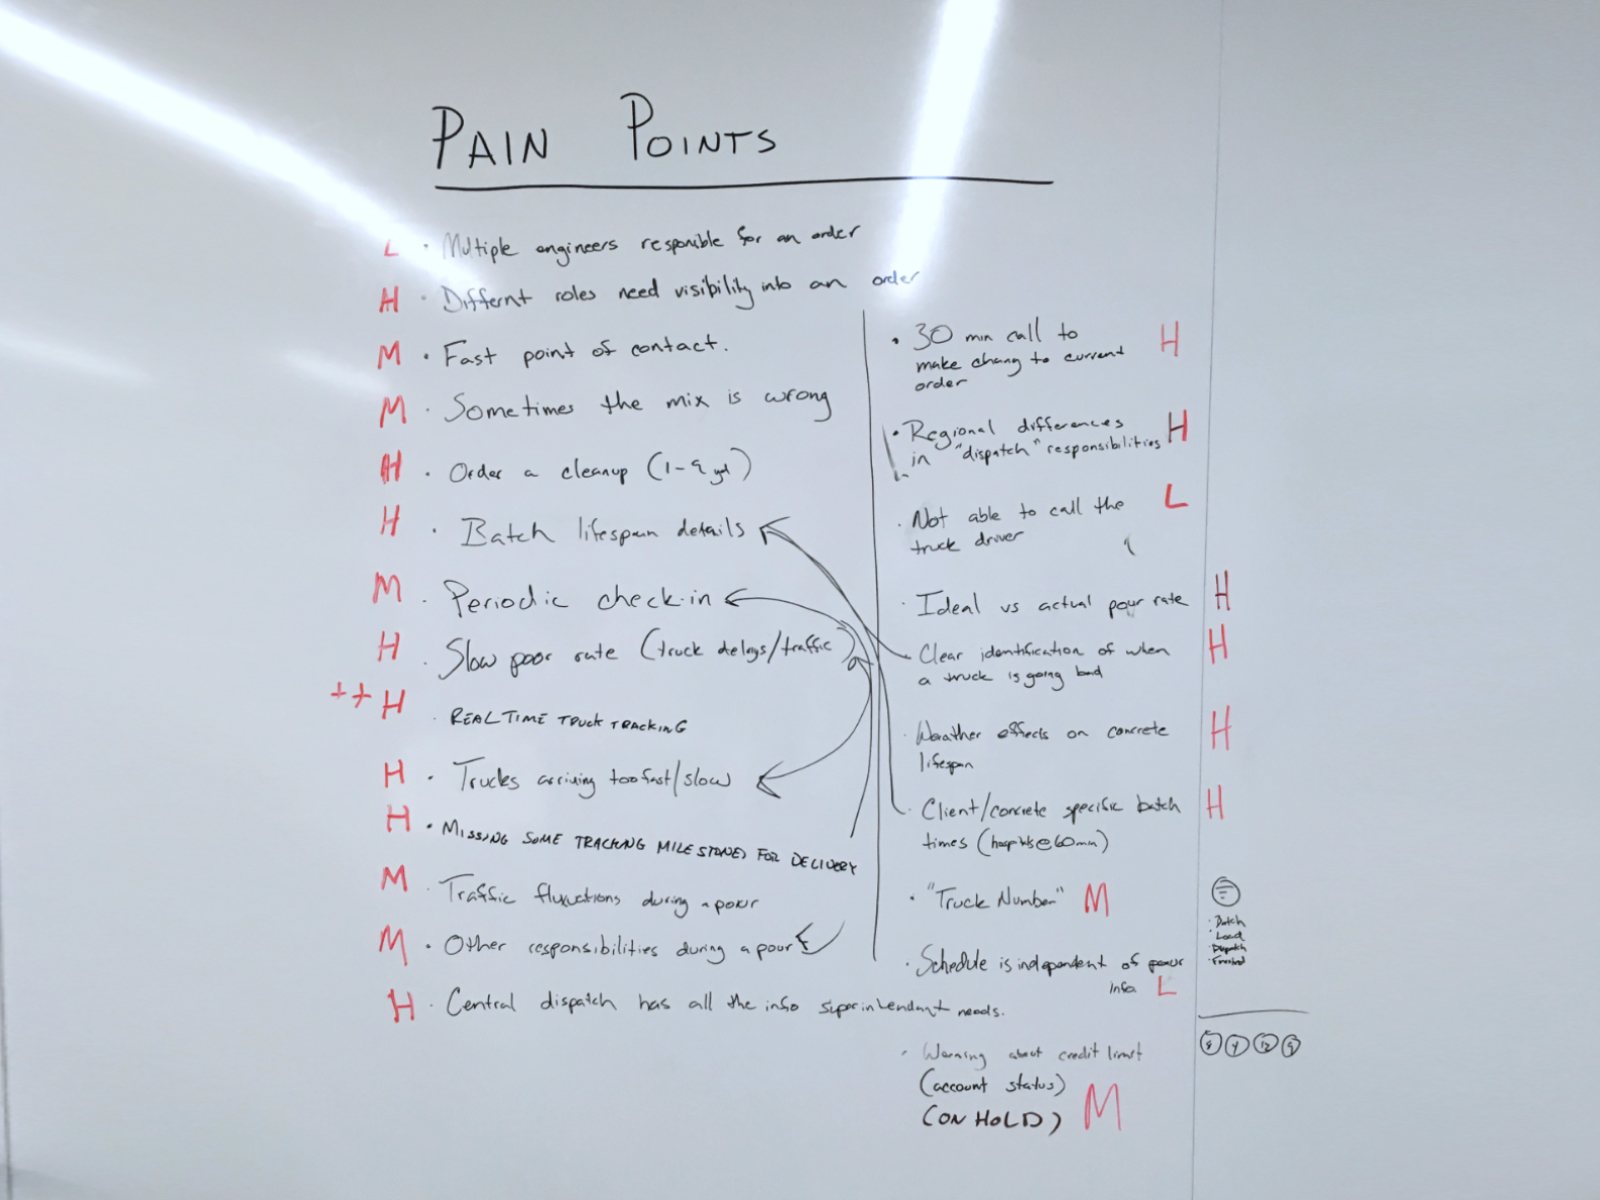 PAIN POINTS
L · Multiple engineers responible for an order
H · Differnt roles need visibility into an order
M · Fast point of contact.
M · Sometimes the mix is wrong
H · Order a cleanup (1-9 yd)
H · Batch lifespan details
M · Periodic check-in
H · Slow poor rate (truck delays/traffic)
++ H · REAL TIME TRUCK TRACKING
H · Trucks arriving too fast/slow
H · MISSING SOME TRACKING MILESTONES FOR DELIVERY
M · Traffic during a pour
M · Other responsibilities during a pour
H · Central dispatch has all the info superintendant needs.
· 30 min call to H
make chang to current
order
· Regional differences H
in "dispatch" responsibilities
· Not able to call the L
truck driver
· Ideal vs actual pour rate H
· Clear identification of when H
a truck is going bad
· Weather effects on concrete H
lifespan
· Client/concrete specific batch H
times (@60min)
· "Truck Number" M
· Schedule is independent of pour
info. L
· Warning about credit limit
(account status)
(ON HOLD) M
· Batch
· Load
· Dispatch
8 9 12 9